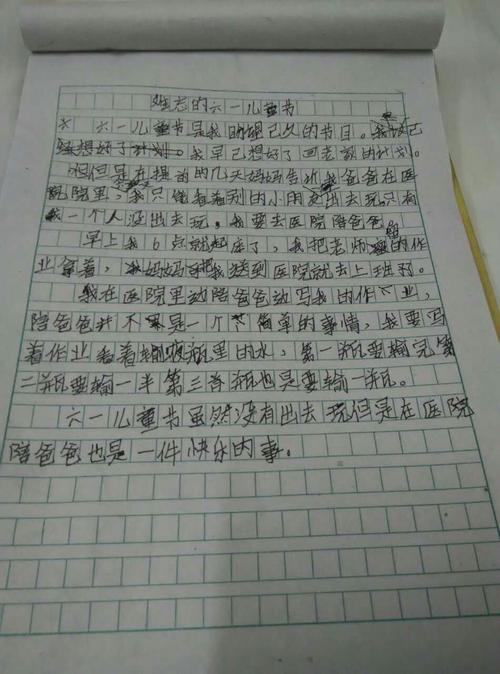 难忘的六一儿童节
六一儿童节是我盼望已久的节目。我
想好了计划。我早己想好了回老家的计划。
但是在提前的几天妈妈告诉我爸爸在医
院里,我只能看着别的小朋友出去玩只有
我一个人没出去玩。我要去医院陪爸爸。
早上我6点就起床了,我把老师的作
业拿着,妈妈把我送到医院就去上班了。
我在医院里边陪爸爸边写我的作业,
陪爸爸并不是一个简单的事情,我要写
着作业看着输液瓶里的水,第一瓶要输完第
二瓶要输一半第三瓶也是要输一瓶。
六一儿童节虽然没有出去玩但是在医院
陪爸爸也是一件快乐的事。